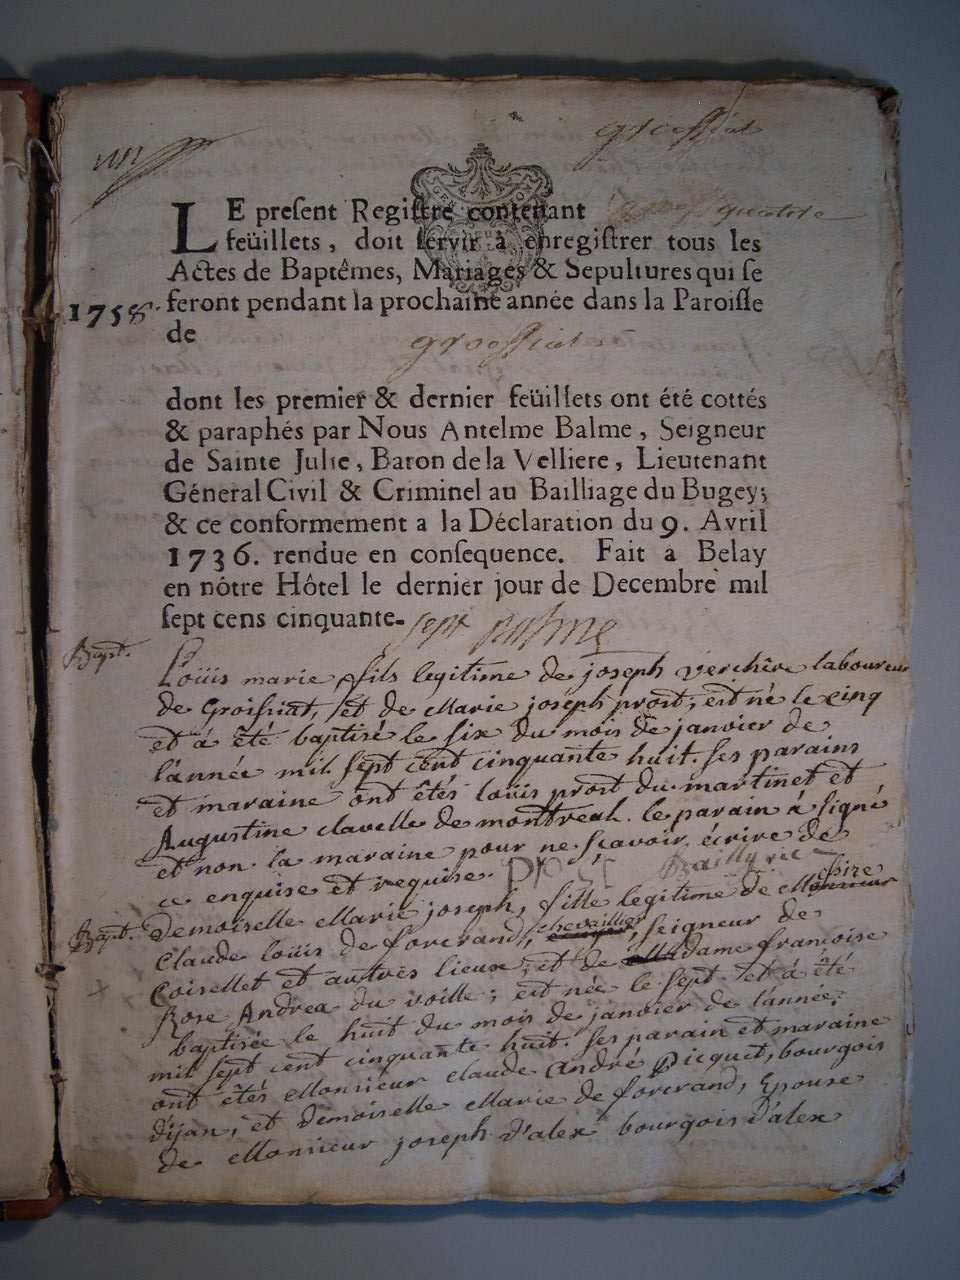 groissiat
LE preſent Regiſtre contenant quatorze
feüillets, doit ſervir à enregiſtrer tous les
Actes de Baptêmes, Mariages & Sepultures qui ſe
1758. feront pendant la prochaine année dans la Paroiſſe
de groissiat
dont les premier & dernier feüillets ont été cottés
& paraphés par Nous Antelme Balme, Seigneur
de Sainte Julie, Baron de la Velliere, Lieutenant
Géneral Civil & Criminel au Bailliage du Bugey;
& ce conformement a la Déclaration du 9. Avril
1736. rendue en conſequence. Fait a Belay
en nôtre Hôtel le dernier jour de Decembre mil
ſept cens cinquante- sept Balme
Bapt. Loüis marie, fils legitime de joseph verchêre laboureur
de Groissiat, et de Marie joseph prost, est né le cinq
et â êté baptisé le six du mois de janvier de
l'année mil sept cent cinquante huit. ses parains
et maraine ont êtés loüis prost du martinet et
Augustine clavelle de montreal. le parain â signé
et non la maraine pour ne sçavoir écrire de
ce enquise et requise. prost Bailly vic
Bapt. Demoiselle Marie joseph, fille legitime de Messire
Claude loüis de forcrand, chevallier, seigneur de
Coisellet et autres lieux; et de Madame françoise
Rose Andrea du voille; est née le sept et â êté
baptisée le huit du mois de janvier de l'année
mil sept cent cinquante huit. ses parain et maraine
ont êtés Monsieur claude André picquet, bourgois
d'ijan, et Demoiselle Marie de forcrand, Epouse
de Monsieur joseph d'alex bourgois d'alex